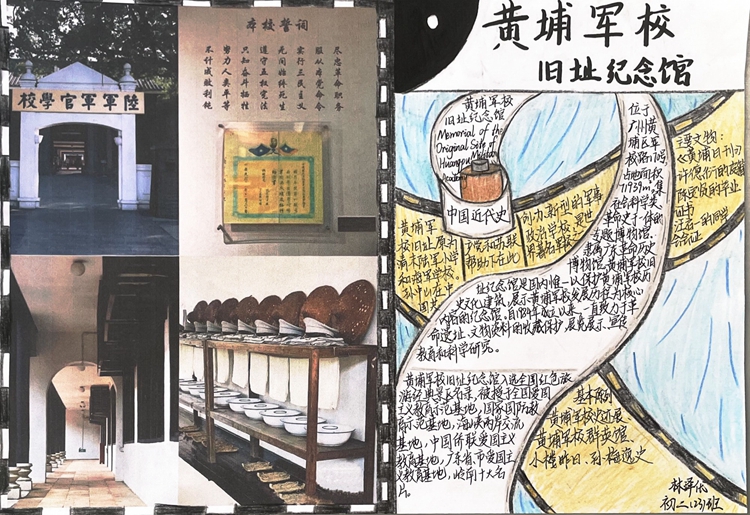 陸軍軍官學校
本校誓詞
尽忠革命职务
服从本党命令
实行三民主义
无间始终死生
遵守五权宪法
只知奋斗牺牲
努力人类平等
不计成败利钝
黄埔军校
旧址纪念馆
黄埔军校
旧址纪念馆
Memorial of the
Original Site of
Huangpu Military
Academy
中国近代史
位于
广州黄
埔区军
校路170号,
占地面积
11939m²,集
社会科学类、
革命史于一体的
专题博物馆。
隶属广东革命历史
博物馆。黄埔军校旧
主要文物:
《黄埔日刊》
毕业
证书
黄埔军
校旧址原为
清末陆军小学
和海军学校。
孙中山在中
国共
产党和苏联
帮助下在此
创办新型的军事
政治学校,是世
界著名军校。
址纪念馆是国内惟一以保护黄埔军校历
史文化建筑、展示黄埔军校发展历程为核心
内容的纪念馆,自1984年成立以来,一直致力于革
命遗址、文物资料的收藏保护、展览展示、宣传
教育和科学研究。
黄埔军校旧址纪念馆入选全国红色旅
游经典景区名录,被授予全国爱国
主义教育示范基地,国家国防教
育示范基地,海峡两岸交流
基地,中国侨联爱国主义
教育基地,广东省、市爱国主
义教育基地,岭南十大名
片。
基本陈列
黄埔军校史迹展
黄埔军校群英馆、
小楼昨日、孙梅逸史
初二(23)班